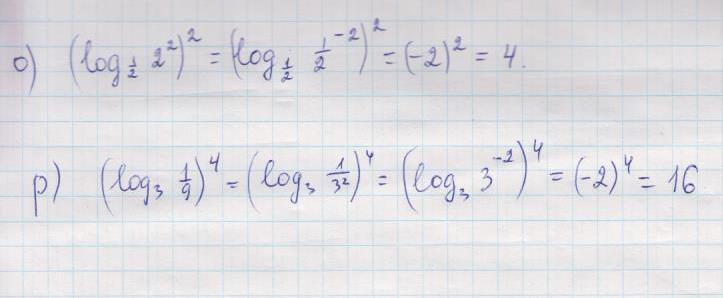 о) (log_{1/2} 2^2)^2 = (log_{1/2} 1/2^{-2})^2 = (-2)^2 = 4.
р) (log_3 1/9)^4 = (log_3 1/3^2)^4 = (log_3 3^{-2})^4 = (-2)^4 = 16